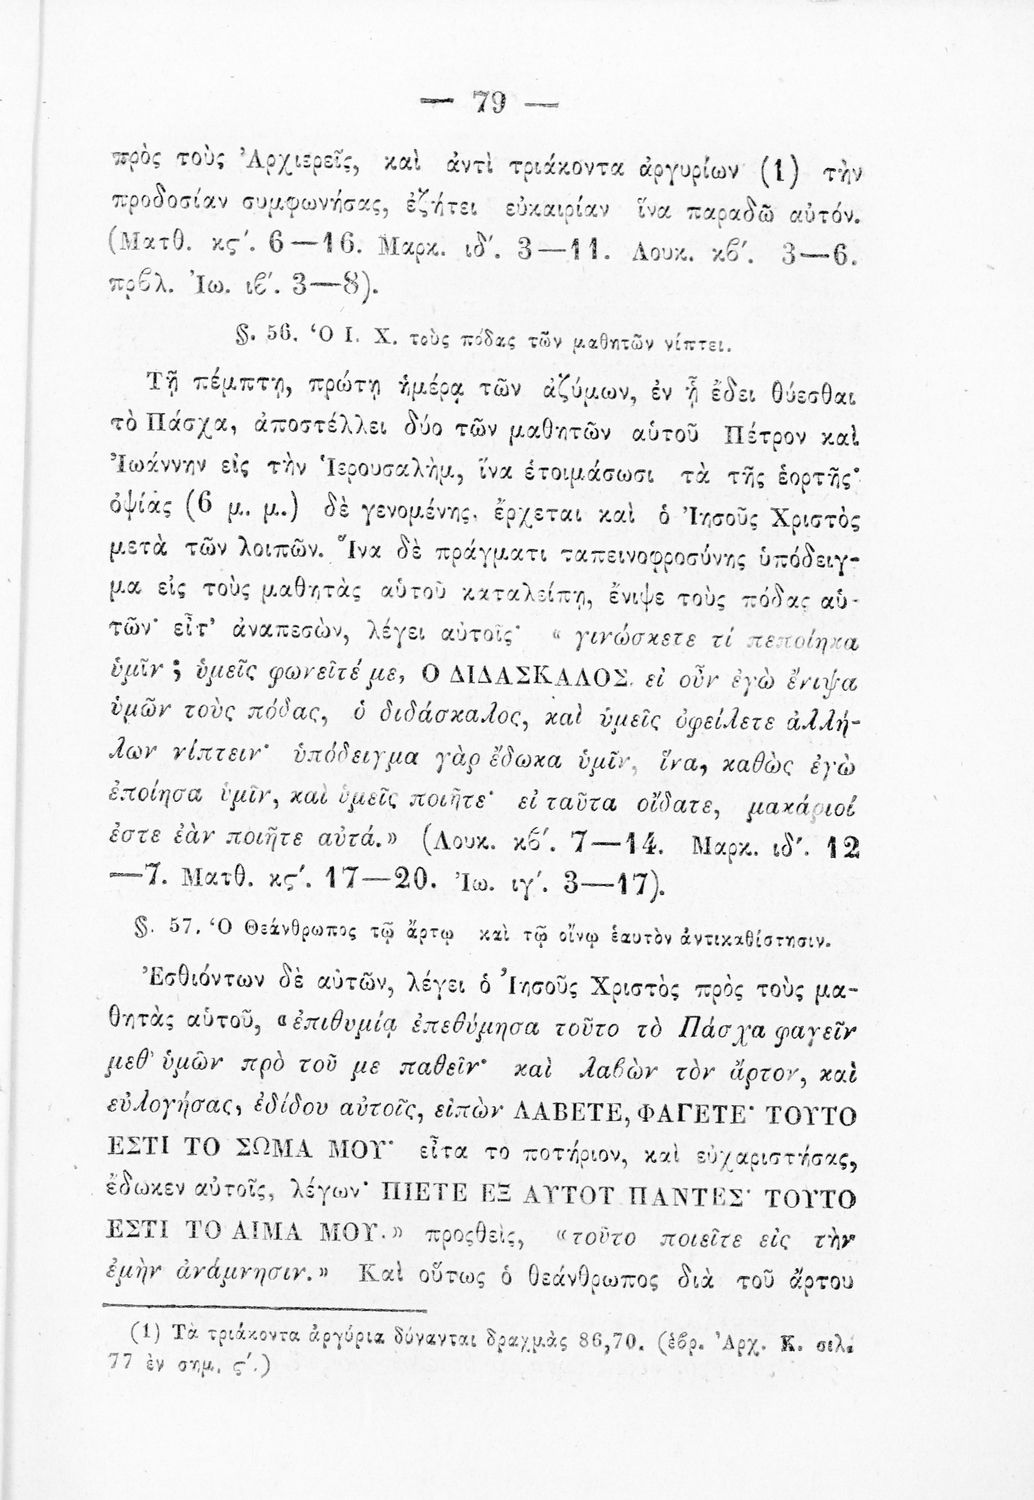 — 79 —
πρὸς τοὺς Ἀρχιερεῖς, καὶ ἀντὶ τριάκοντα ἀργυρίων (1) τὴν
προδοσίαν συμφωνήσας, ἐζήτει εὐκαιρίαν ἵνα παραδῶ αὐτόν.
(Ματθ. κς'. 6—16. Μαρκ. ιδ'. 3—11. Λουκ. κϐ'. 3—6.
πρϐλ. Ἰω. ιϐ'. 3—8).
§. 56. Ὁ Ι. Χ. τοὺς πόδας τῶν μαθητῶν νίπτει.
Τῇ πέμπτῃ, πρώτῃ ἡμέρᾳ τῶν ἀζύμων, ἐν ᾗ ἔδει θύεσθαι
τὸ Πάσχα, ἀποστέλλει δύο τῶν μαθητῶν αὑτοῦ Πέτρον καὶ
Ἰωάννην εἰς τὴν Ἱερουσαλὴμ, ἵνα ἑτοιμάσωσι τὰ τῆς ἑορτῆς·
ὀψίας (6 μ. μ.) δὲ γενομένης, ἔρχεται καὶ ὁ Ἰησοῦς Χριστὸς
μετὰ τῶν λοιπῶν. Ἵνα δὲ πράγματι ταπεινοφροσύνης ὑπόδειγ-
μα εἰς τοὺς μαθητὰς αὑτοῦ καταλείπῃ, ἔνιψε τοὺς πόδας αὐ-
τῶν· εἶτ' ἀναπεσὼν, λέγει αὐτοῖς· « γινώσκετε τί πεποίηκα
ὑμῖν ; ὑμεῖς φωνεῖτέ με, Ο ΔΙΔΑΣΚΑΛΟΣ. εἰ οὖν ἐγὼ ἔνιψα
ὑμῶν τοὺς πόδας, ὁ διδάσκαλος, καὶ ὑμεῖς ὀφείλετε ἀλλή-
λων νίπτειν· ὑπόδειγμα γὰρ ἔδωκα ὑμῖν, ἵνα, καθὼς ἐγὼ
ἐποίησα ὑμῖν, καὶ ὑμεῖς ποιῆτε· εἰ ταῦτα οἴδατε, μακάριοί
ἐστε ἐὰν ποιῆτε αὐτά.» (Λουκ. κϐ'. 7—14. Μαρκ. ιδ'. 12
—7. Ματθ. κς'. 17—20. Ἰω. ιγ'. 3—17).
§. 57. Ὁ Θεάνθρωπος τῷ ἄρτῳ καὶ τῷ οἴνῳ ἑαυτὸν ἀντικαθίστησιν.
Ἐσθιόντων δὲ αὐτῶν, λέγει ὁ Ἰησοῦς Χριστὸς πρὸς τοὺς μα-
θητὰς αὑτοῦ, «ἐπιθυμίᾳ ἐπεθύμησα τοῦτο τὸ Πάσχα φαγεῖν
μεθ' ὑμῶν πρὸ τοῦ με παθεῖν· καὶ λαϐὼν τὸν ἄρτον, καὶ
εὐλογήσας, ἐδίδου αὐτοῖς, εἰπὼν ΛΑΒΕΤΕ, ΦΑΓΕΤΕ· ΤΟΥΤΟ
ΕΣΤΙ ΤΟ ΣΩΜΑ ΜΟΥ· εἶτα τὸ ποτήριον, καὶ εὐχαριστήσας,
ἔδωκεν αὐτοῖς, λέγων· ΠΙΕΤΕ ΕΞ ΑΥΤΟΥ ΠΑΝΤΕΣ· ΤΟΥΤΟ
ΕΣΤΙ ΤΟ ΑΙΜΑ ΜΟΥ.» προςθεὶς, «τοῦτο ποιεῖτε εἰς τὴν
ἐμὴν ἀνάμνησιν.» Καὶ οὕτως ὁ θεάνθρωπος διὰ τοῦ ἄρτου
(1) Τὰ τριάκοντα ἀργύρια δύνανται δραχμὰς 86,70. (ἑϐρ. Ἀρχ. Κ. σελ.
77 ἐν σημ. ς'.)